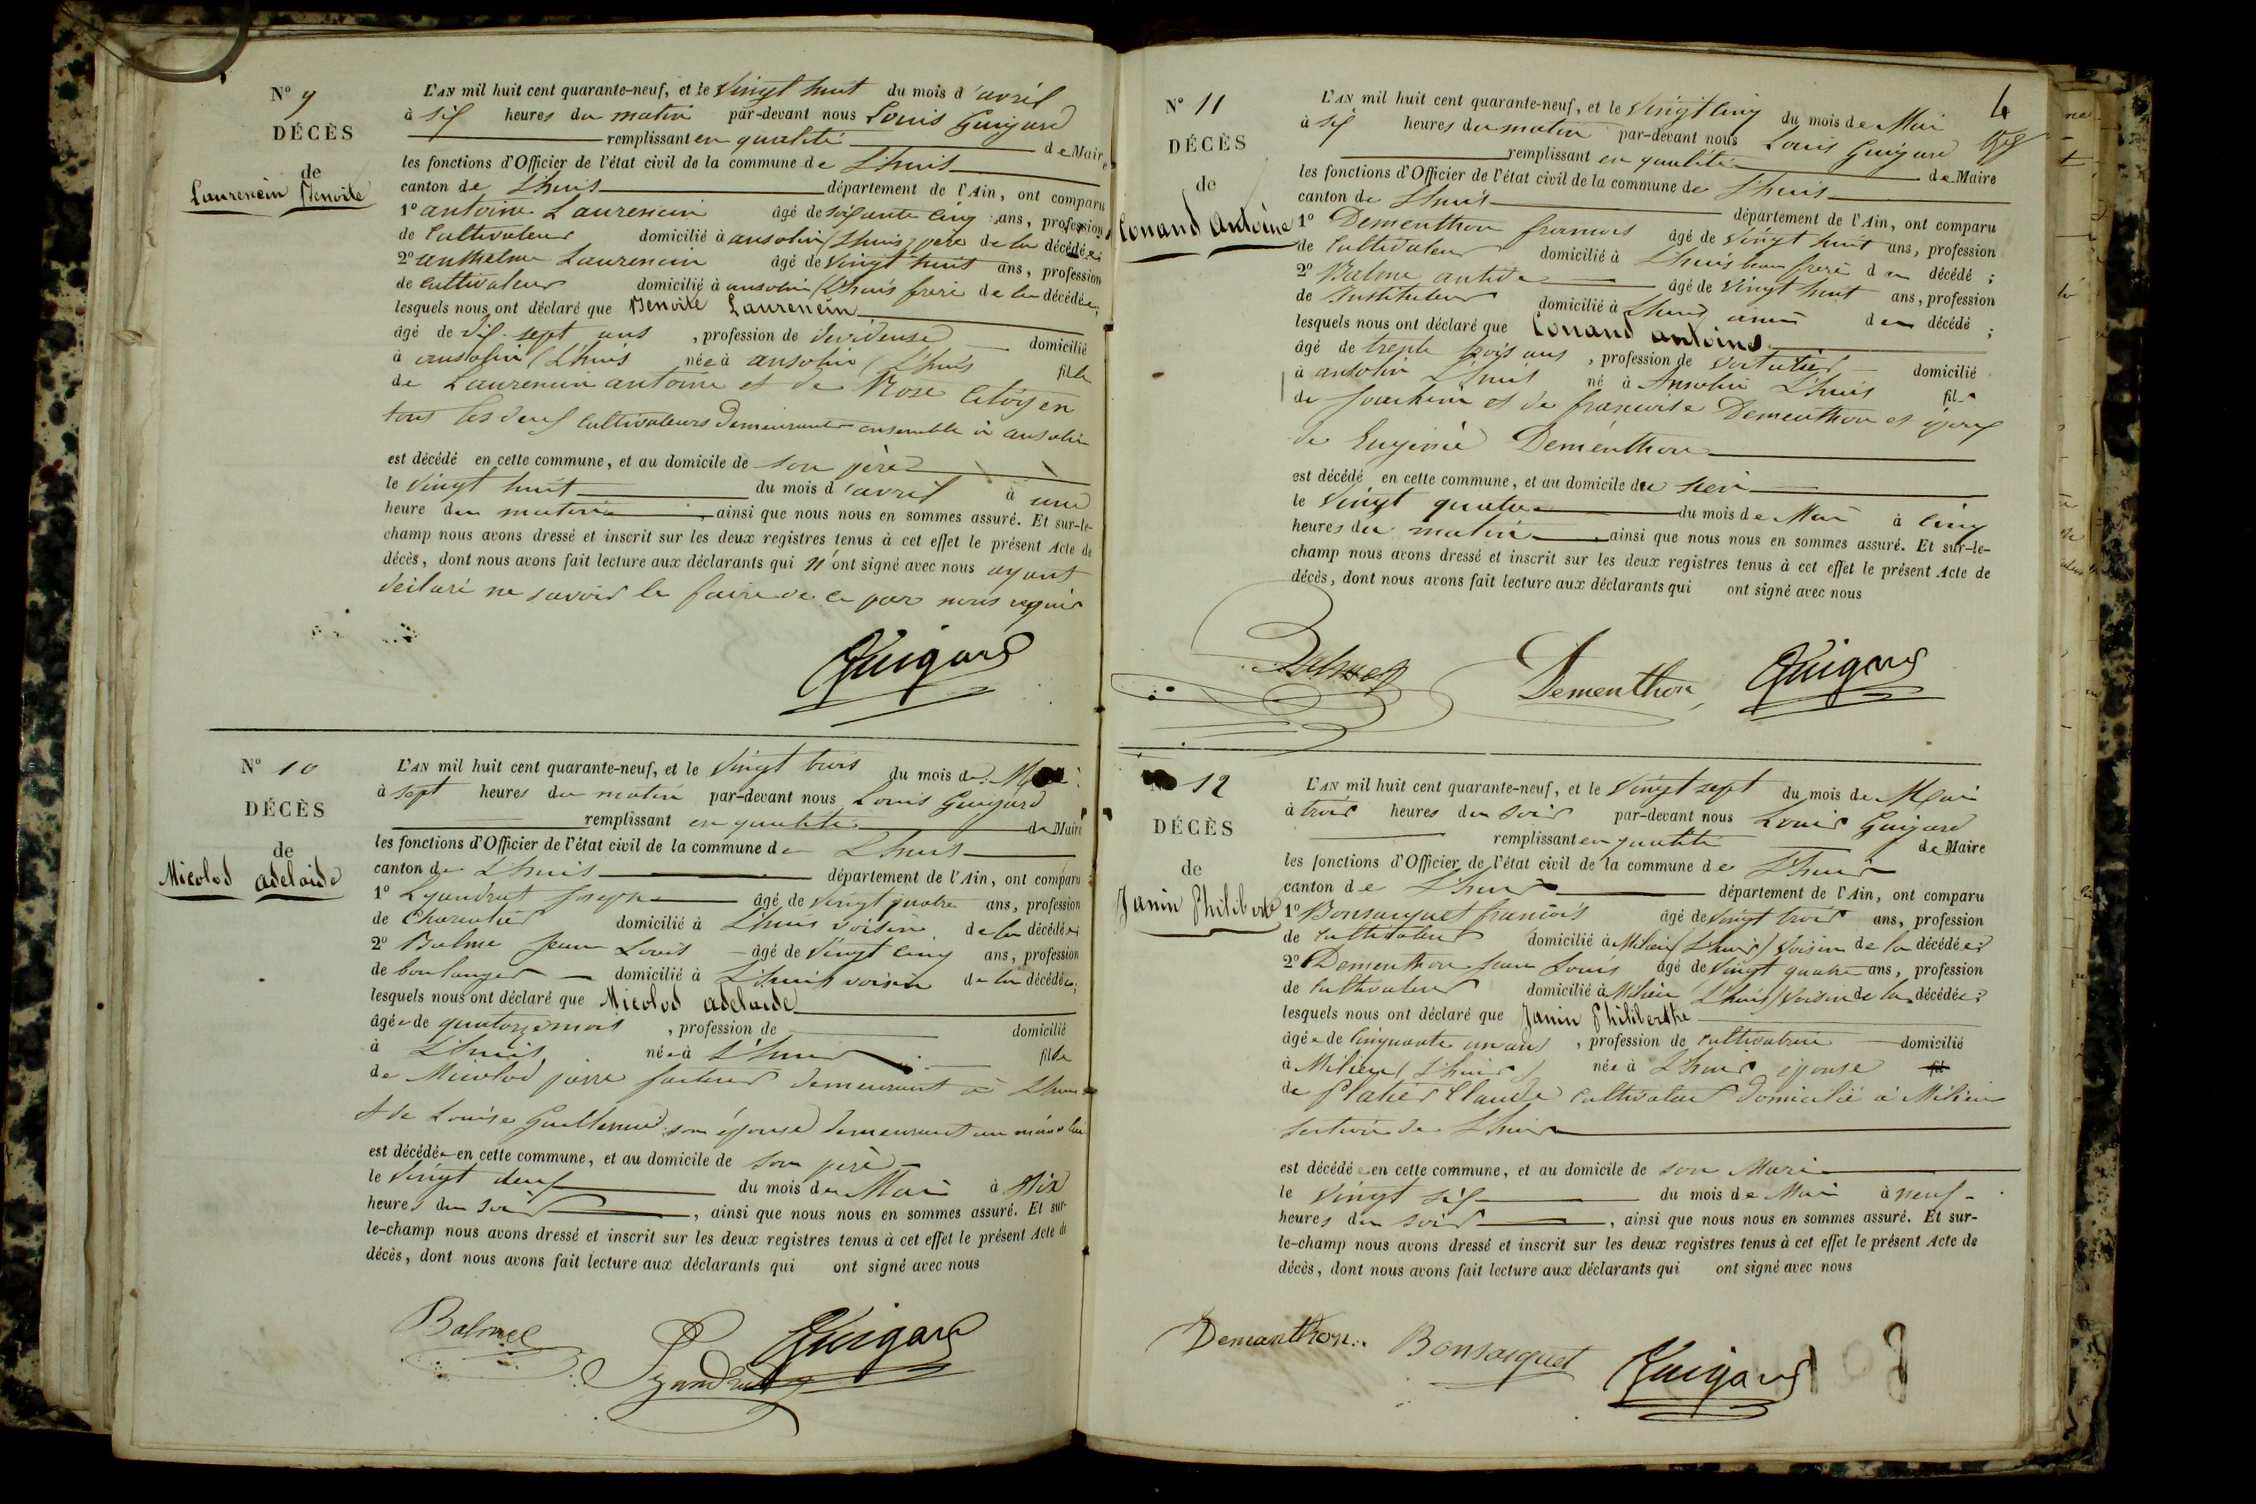 N° 9
DÉCÈS
de
Laurencin Benoite
L'AN mil huit cent quarante-neuf, et le vingt huit du mois d'avril
à six heures du matin par-devant nous Louis Guigard
remplissant en qualité de Maire
les fonctions d'Officier de l'état civil de la commune de Lhuis
canton de Lhuis département de l'Ain, ont comparu
1° antoine Laurencin âgé de soixante cinq ans, profession
de Cultivateur domicilié à ansolin (Lhuis) père de la décédée
2° anthelme Laurencin âgé de vingt huit ans, profession
de cultivateur domicilié à ansolin (Lhuis frère de la décédée,
lesquels nous ont déclaré que Benoite Laurencin
âgé de dix-sept ans, profession de devideuse domicilié
à ansolin (Lhuis née à ansolin (Lhuis fille
de Laurencin antoine et de Rose Citoyen
tous les deux cultivateurs demeurants ensemble à ansolin
est décédé en cette commune, et au domicile de son père
le vingt huit du mois d'avril à une
heure du matin, ainsi que nous nous en sommes assuré. Et sur-le-
champ nous avons dressé et inscrit sur les deux registres tenus à cet effet le présent Acte de
décès, dont nous avons fait lecture aux déclarants qui n'ont signé avec nous ayant
declaré ne savoir le faire de ce par nous requis
Guigard
N° 10
DÉCÈS
de
Micolod adelaide
L'AN mil huit cent quarante-neuf, et le vingt trois du mois de Mai
à sept heures du matin par-devant nous Louis Guigard
remplissant en qualité de Maire
les fonctions d'Officier de l'état civil de la commune de Lhuis
canton de Lhuis département de l'Ain, ont comparu
1° Lyandrat Joseph âgé de vingt quatre ans, profession
de Charcutier domicilié à Lhuis voisin de la décédée
2° Balme Jean Louis âgé de vingt cinq ans, profession
de boulanger domicilié à Lhuis voisin de la décédée;
lesquels nous ont déclaré que Micolod adelaide
âgée de quatorze mois, profession de domicilié
à Lhuis, née à Lhuis fille
de Micolod pierre facteur demeurant à Lhuis
et de Louise Guillermin son épouse demeurant
est décédée en cette commune, et au domicile de son père
le vingt deux du mois de Mai à dix
heures du soir, ainsi que nous nous en sommes assuré. Et sur-
le-champ nous avons dressé et inscrit sur les deux registres tenus à cet effet le présent Acte de
décès, dont nous avons fait lecture aux déclarants qui ont signé avec nous
Balme
Lyandrat
Guigard
4
N° 11
DÉCÈS
de
Conand Antoine
L'AN mil huit cent quarante-neuf, et le vingt cinq du mois de Mai
à six heures du matin par-devant nous Louis Guigard
remplissant en qualité de Maire
les fonctions d'Officier de l'état civil de la commune de Lhuis
canton de Lhuis département de l'Ain, ont comparu
1° Dementhon francois âgé de vingt huit ans, profession
de Cultivateur domicilié à Lhuis beau frere du décédé;
2° Balme antide âgé de vingt huit ans, profession
de Instituteur domicilié à Lhuis ami du décédé;
lesquels nous ont déclaré que Conand antoine
âgé de trente trois ans, profession de domicilié
à ansolin Lhuis né à Ansolin Lhuis fils
de Joachim et de francoise Dementhon et époux
de Eugénie Dementhon
est décédé en cette commune, et au domicile du sien
le vingt quatre du mois de Mai à cinq
heures du matin, ainsi que nous nous en sommes assuré. Et sur-le-
champ nous avons dressé et inscrit sur les deux registres tenus à cet effet le présent Acte de
décès, dont nous avons fait lecture aux déclarants qui ont signé avec nous
Balme
Dementhon
Guigard
N° 12
DÉCÈS
de
Janin Philiberte
L'AN mil huit cent quarante-neuf, et le vingt sept du mois de Mai
à trois heures du soir par-devant nous Louis Guigard
remplissant en qualité de Maire
les fonctions d'Officier de l'état civil de la commune de Lhuis
canton de Lhuis département de l'Ain, ont comparu
1° Bonsacquet francois âgé de vingt trois ans, profession
de cultivateur domicilié à Milieu (Lhuis) voisin de la décédée
2° Dementhon Jean Louis âgé de vingt quatre ans, profession
de Cultivateur domicilié à Milieu (Lhuis) voisin de la décédée;
lesquels nous ont déclaré que Janin Philiberthe
âgée de cinquante un ans, profession de cultivatrice domicilié
à Milieu (Lhuis) née à Lhuis épouse fil
de Platier Claude cultivateur domicilié à Milieu
section de Lhuis
est décédée en cette commune, et au domicile de son Mari
le vingt six du mois de Mai à neuf
heures du soir, ainsi que nous nous en sommes assuré. Et sur-
le-champ nous avons dressé et inscrit sur les deux registres tenus à cet effet le présent Acte de
décès, dont nous avons fait lecture aux déclarants qui ont signé avec nous
Demanthon
Bonsacquet
Guigard